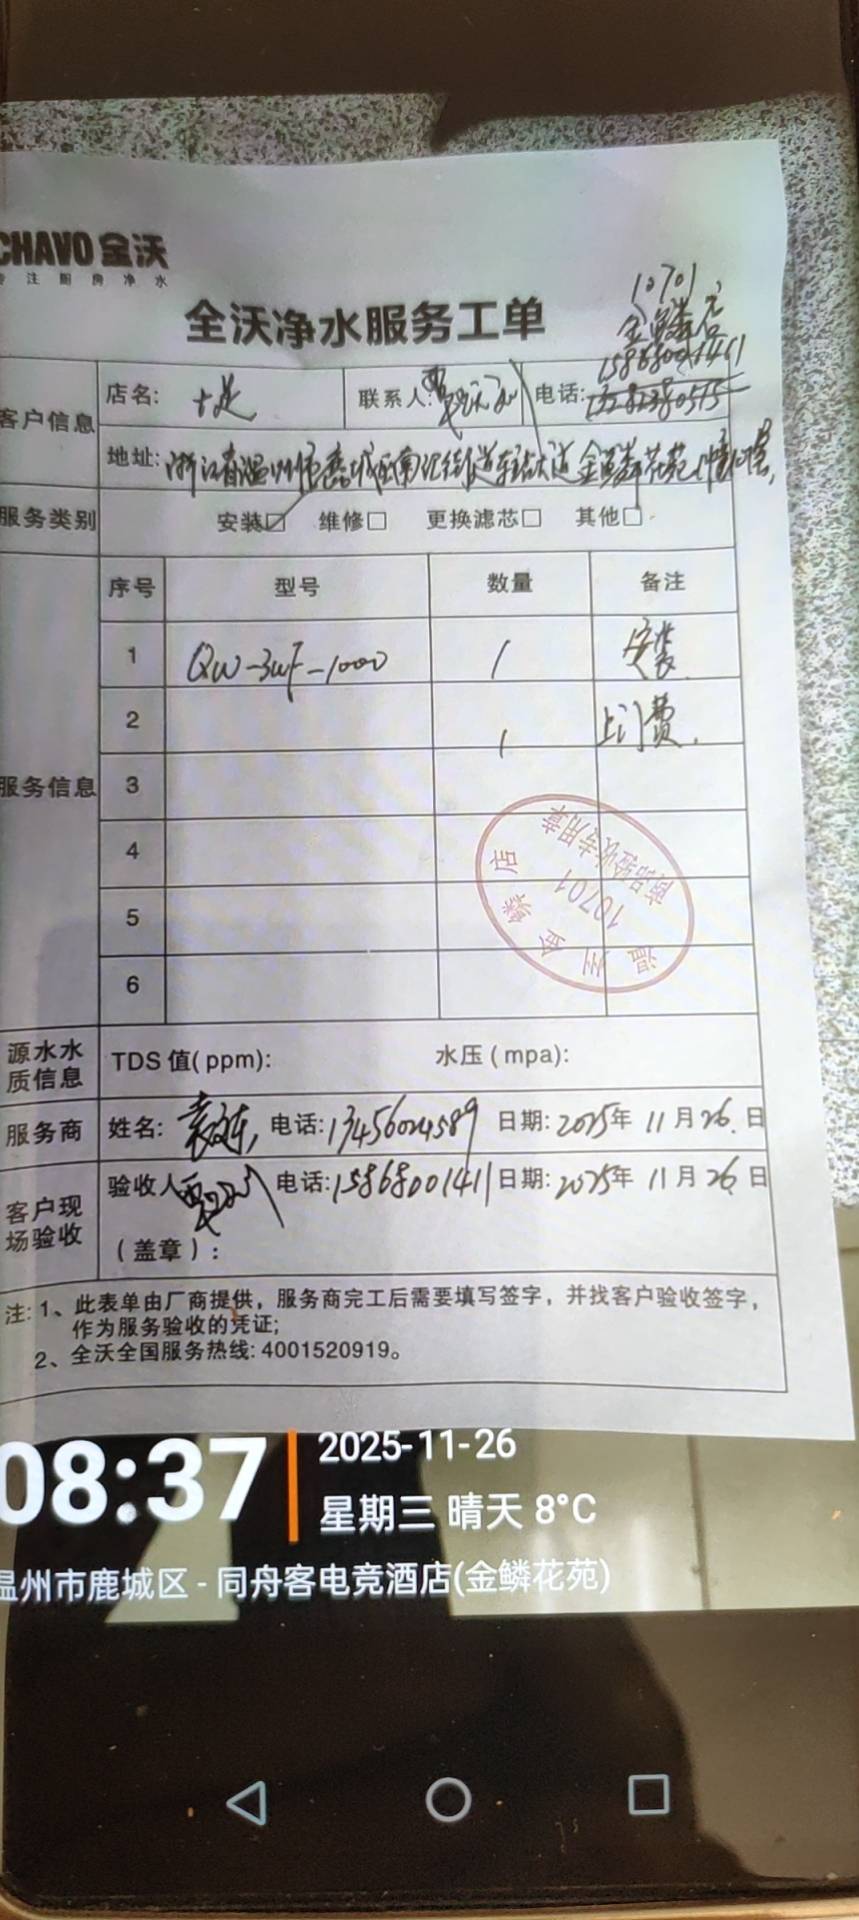 CHAVO 全沃
专注厨房净水
全沃净水服务工单
10701
金鳞店
15868001411
客户信息
店名: 十足 联系人: 电话:
地址: 浙江省温州市鹿城区南汇街道车站大道金鳞花苑
服务类别 安装☑ 维修□ 更换滤芯□ 其他□
服务信息
序号 型号 数量 备注
1 QW-3WF-1000 1 安装
2 1 上门费.
3
4
5
6
温州金鳞店
10701
商品验收专用章
源水水质信息 TDS 值(ppm): 水压(mpa):
服务商 姓名: 电话:13456024589 日期: 2025年 11月26.日
客户现场验收 验收人 电话:15868001411 日期: 2025年 11月26日
(盖章):
注: 1、此表单由厂商提供，服务商完工后需要填写签字，并找客户验收签字，
作为服务验收的凭证;
2、全沃全国服务热线: 4001520919。
08:37
2025-11-26
星期三 晴天 8°C
温州市鹿城区 - 同舟客电竞酒店(金鳞花苑)